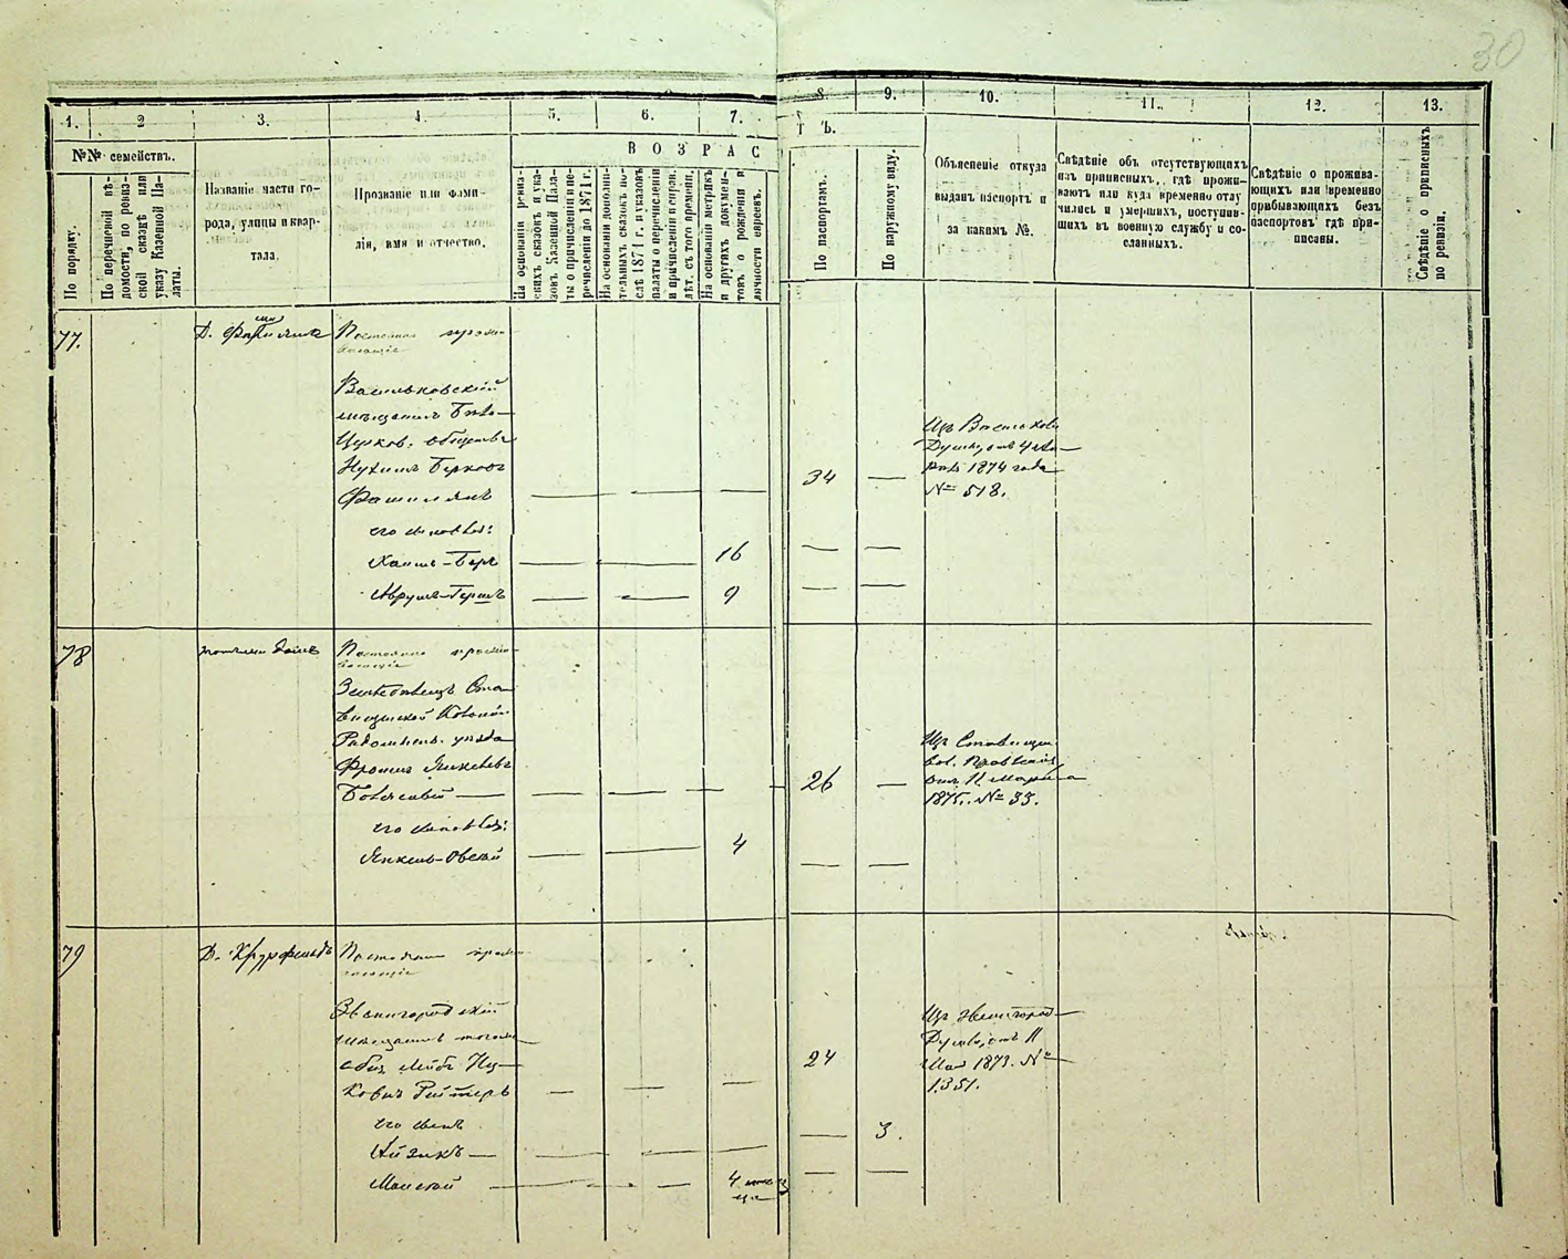 30
1. 2 3. 4. 5. 6. 7. 8. 9. 10. 11. 12. 13.
№№ семействъ.
По порядку.
По перечневой вѣ-
домости, по ревиз-
ской сказкѣ или
указу Казенной Па-
латы.
Названіе части го-
рода, улицы и квар-
тала.
Прозваніе или фами-
лія, имя и отчество.
ВОЗРАСТЪ.
На основаніи ревиз-
скихъ сказокъ и ука-
зовъ Казенный Пала-
ты о причисленіи и пе-
речисленіи до 1871 г.
На основаніи дополни-
тельныхъ сказокъ по-
слѣ 1871 г. и указовъ
палаты о перечисленіи
и причисленіи и справ.
лѣт. съ того времени.
На основаніи метрикъ
и другихъ докумен-
товъ о рожденіи и
личности евреевъ.
По паспортамъ.
По наружному виду.
Объясненіе откуда
выданъ паспортъ и
за какимъ №.
Свѣдѣніе объ отсутствующихъ
изъ приписныхъ, гдѣ прожи-
ваютъ или куда временно отлу
чились и умершихъ, поступив-
шихъ въ военную службу и со-
сланныхъ.
Свѣдѣніе о прожива-
ющихъ или временно
прибывающихъ безъ
паспортовъ гдѣ при-
писаны.
Свѣдѣніе о приписныхъ
по ревизіи.
77.
Постоянно прожи-
вающіе
Васильковскій
мѣщанинъ Бѣло-
Церков. общества
Нухимъ Берковъ
Фашилянъ
34
Изъ Василькова
Думы, отъ
1874 года
№ 518.
его сыновья:
Хаимъ-Беръ 16
Аврумъ-Гершъ 9
78
Постоянно прожи-
вающіе
Земледѣлецъ Ста-
вищской Колоніи
Радомысл. уѣзда
Фроимъ Янкелевъ
26
Изъ Ставищ.
вол. Правленія
1875. № 33.
его сыновья:
Янкель-Овсей 4
79
Постоянно прожи-
вающіе
Звенигородскій
мѣщанинъ того же
общ. Лейба Иц-
ковъ Рейтеръ
24
Изъ Звенигород-
Думы, отъ 11
Мая 1873. №
1351.
его сынъ
Айзикъ 3.
Моисей 4 мѣся
ца